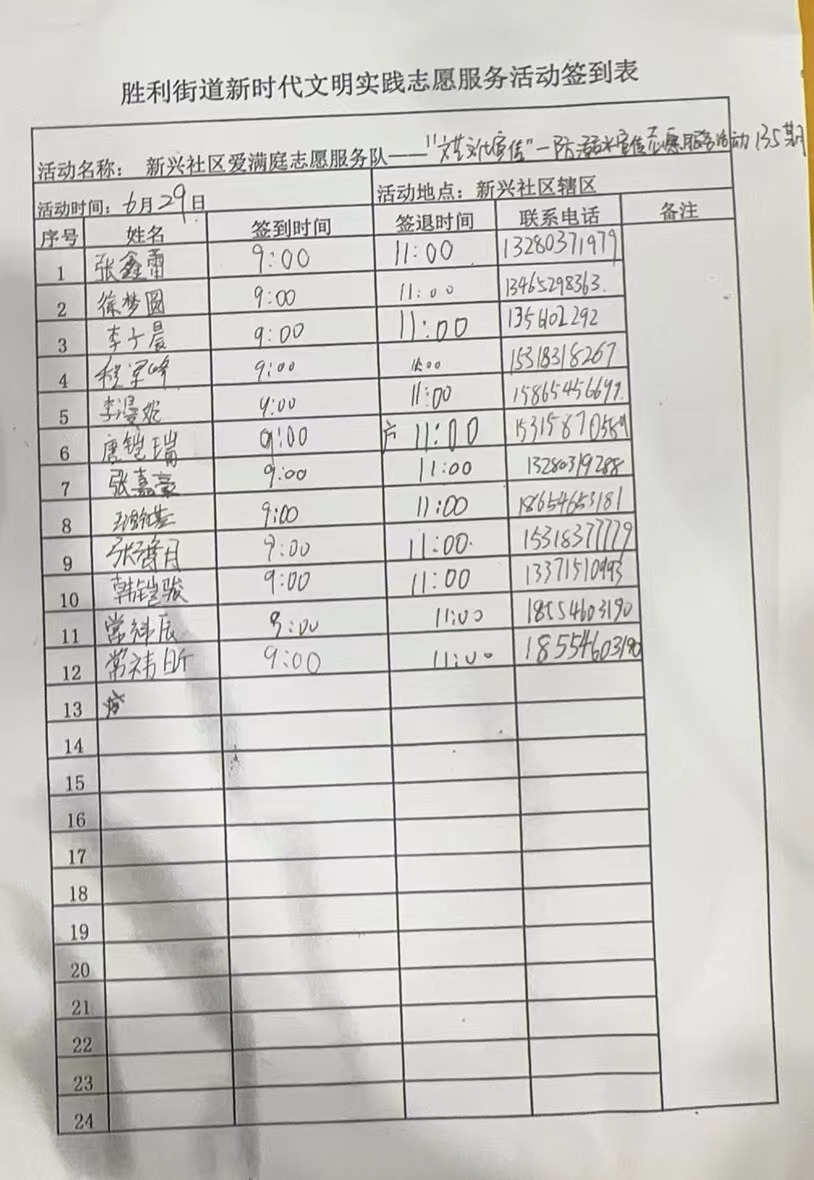 胜利街道新时代文明实践志愿服务活动签到表
活动名称： 新兴社区爱满庭志愿服务队——"文艺文化宣传"一防溺水宣传志愿服务活动135期
活动时间：6月29日 活动地点：新兴社区辖区
序号 姓名 签到时间 签退时间 联系电话 备注
1 张鑫蕾 9:00 11:00 13280371979
2 徐梦圆 9:00 11:00 13465298363.
3 李子晨 9:00 11:00
4 程军峰 9:00 15318318267
5 李漫妮 9:00 11:00
6 唐铠瑞 9:00 11:00
7 张嘉豪 9:00 11:00 13280319288
8 9:00 11:00 18654653181
9 9:00 11:00 15318377779
10 韩铠骏 9:00 11:00 13371510993
11 9:00 11:00 18554603190
12 常祎昕 9:00 11:00 18554603190
13
14
15
16
17
18
19
20
21
22
23
24